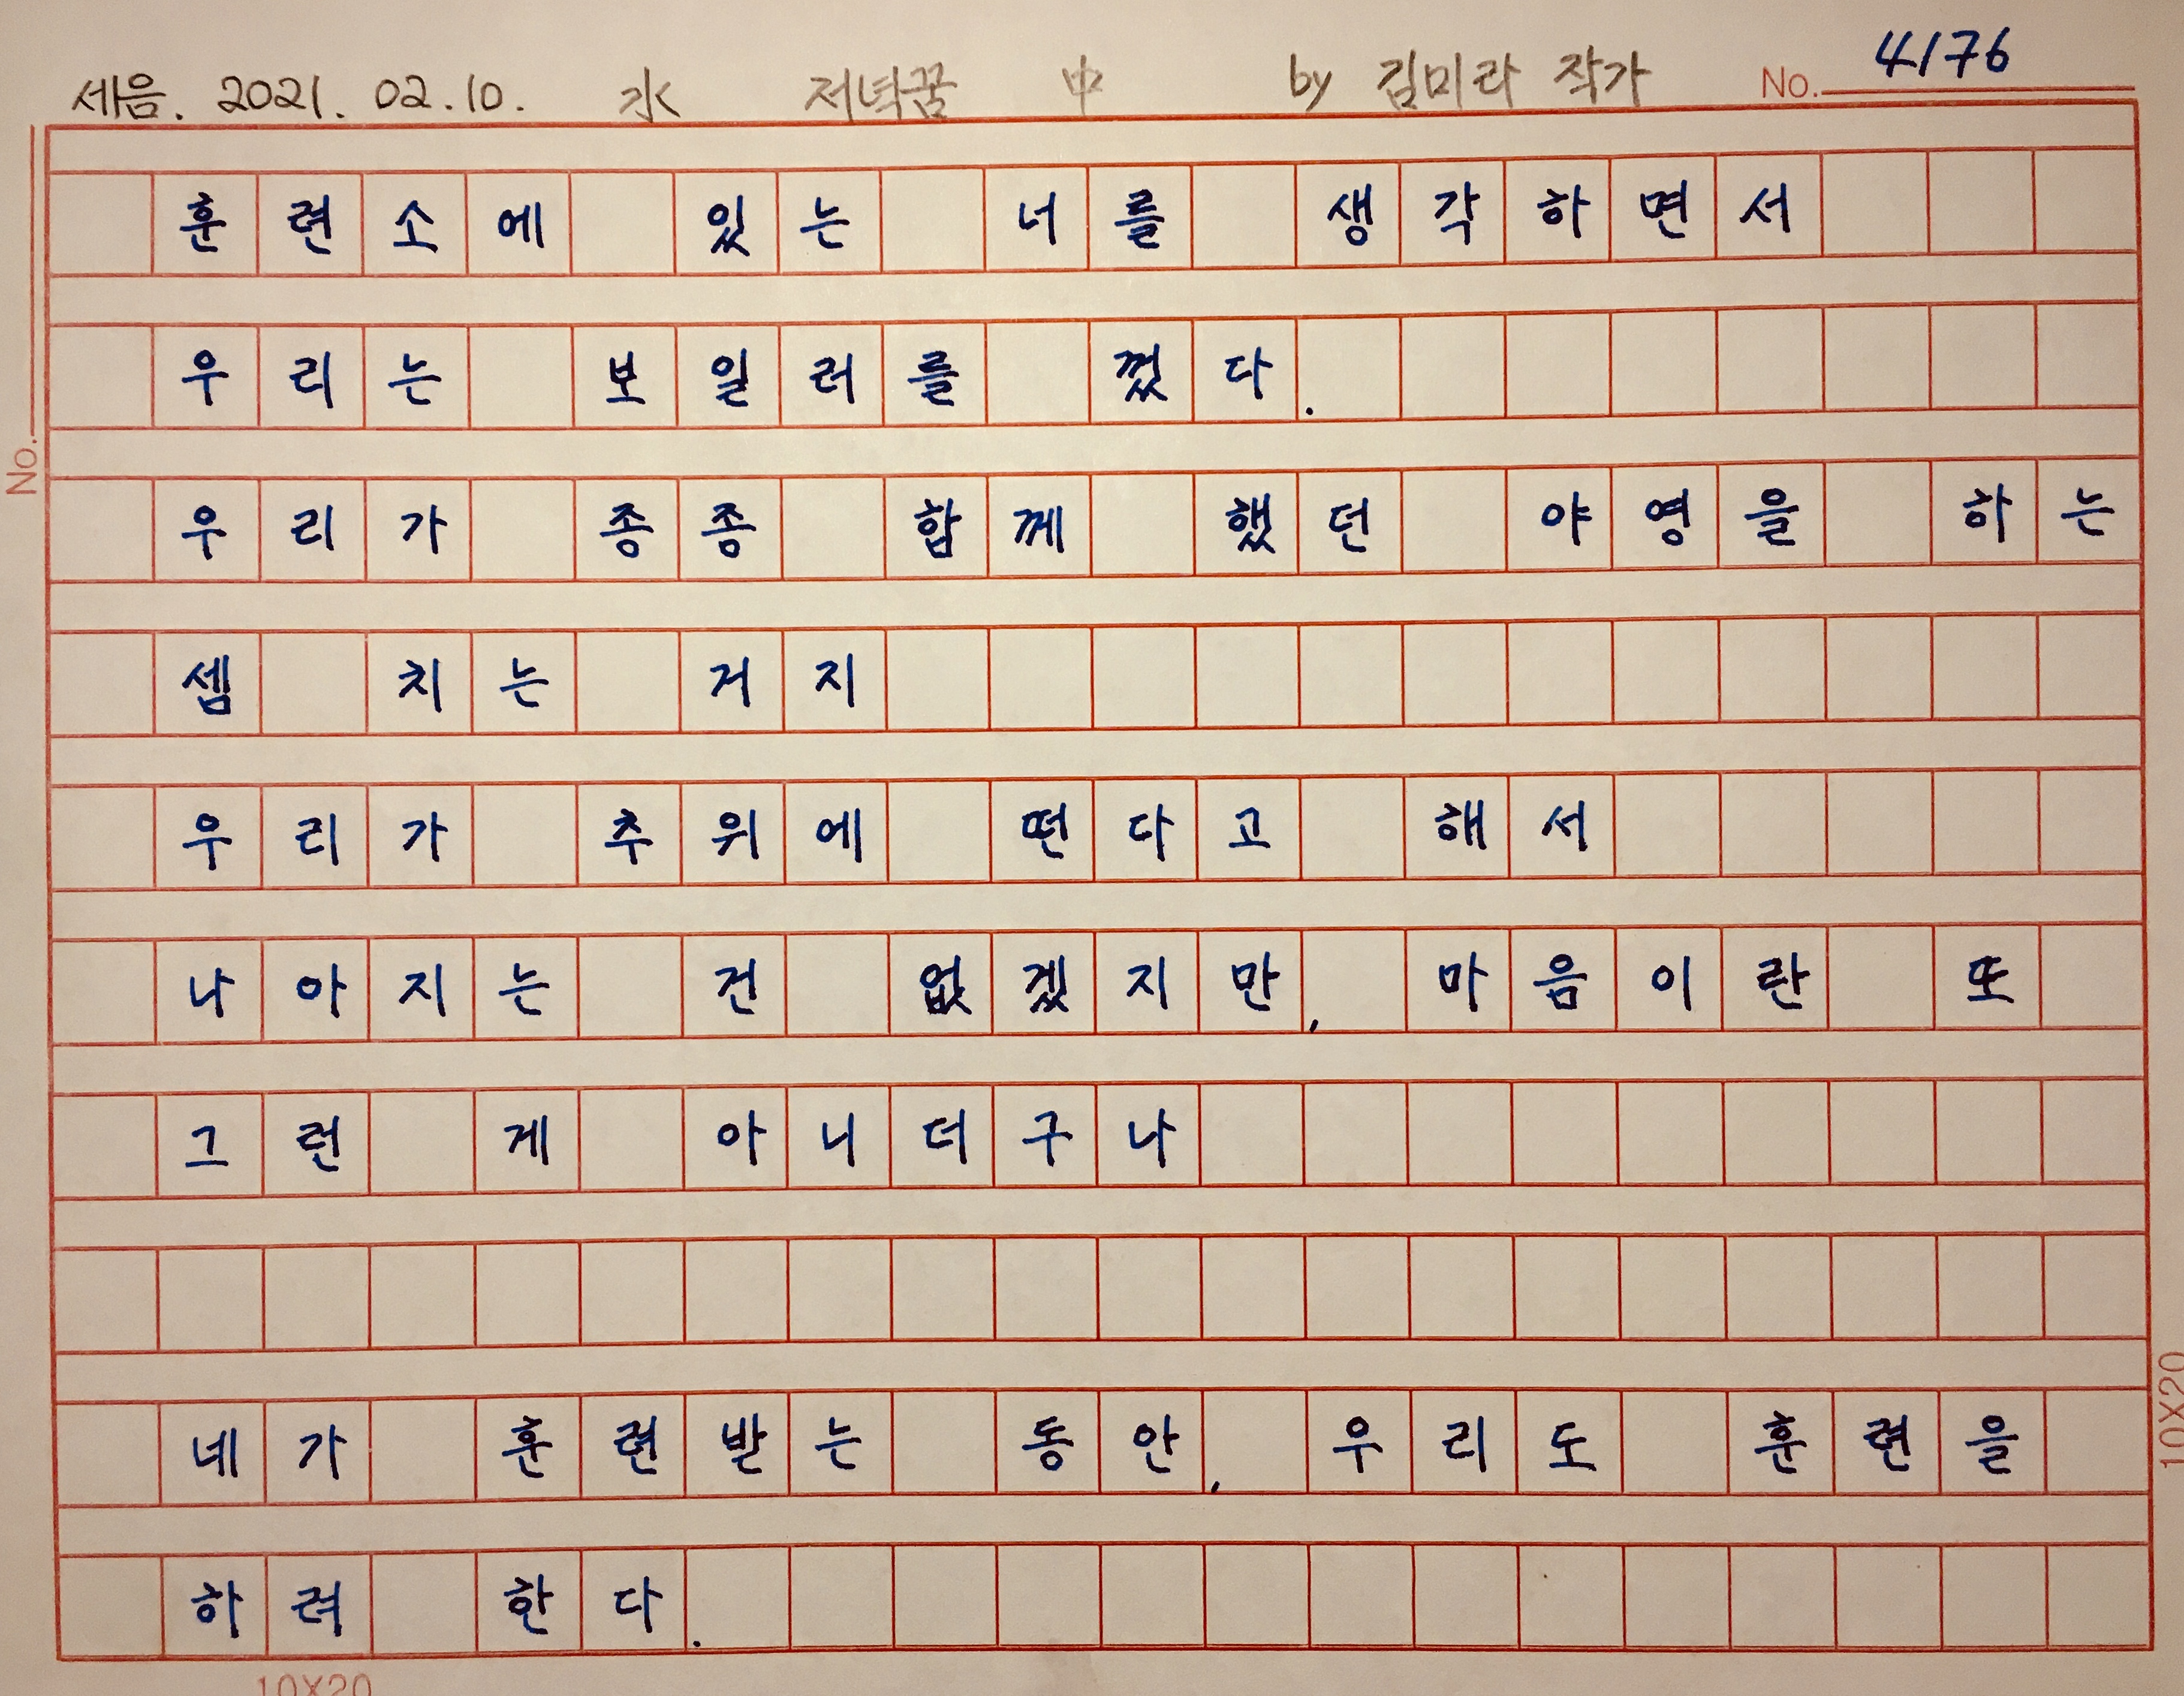 세음. 2021. 02.10. 水 저녁꿈 中 by 김미라 작가 No. 4176
훈련소에 있는 너를 생각하면서
우리는 보일러를 껐다.
No.
우리가 종종 함께 했던 야영을 하는
셈 치는 거지
우리가 추위에 떤다고 해서
나아지는 건 없겠지만, 마음이란 또
그런 게 아니더구나
네가 훈련받는 동안, 우리도 훈련을
10X20
하려 한다.
10X20